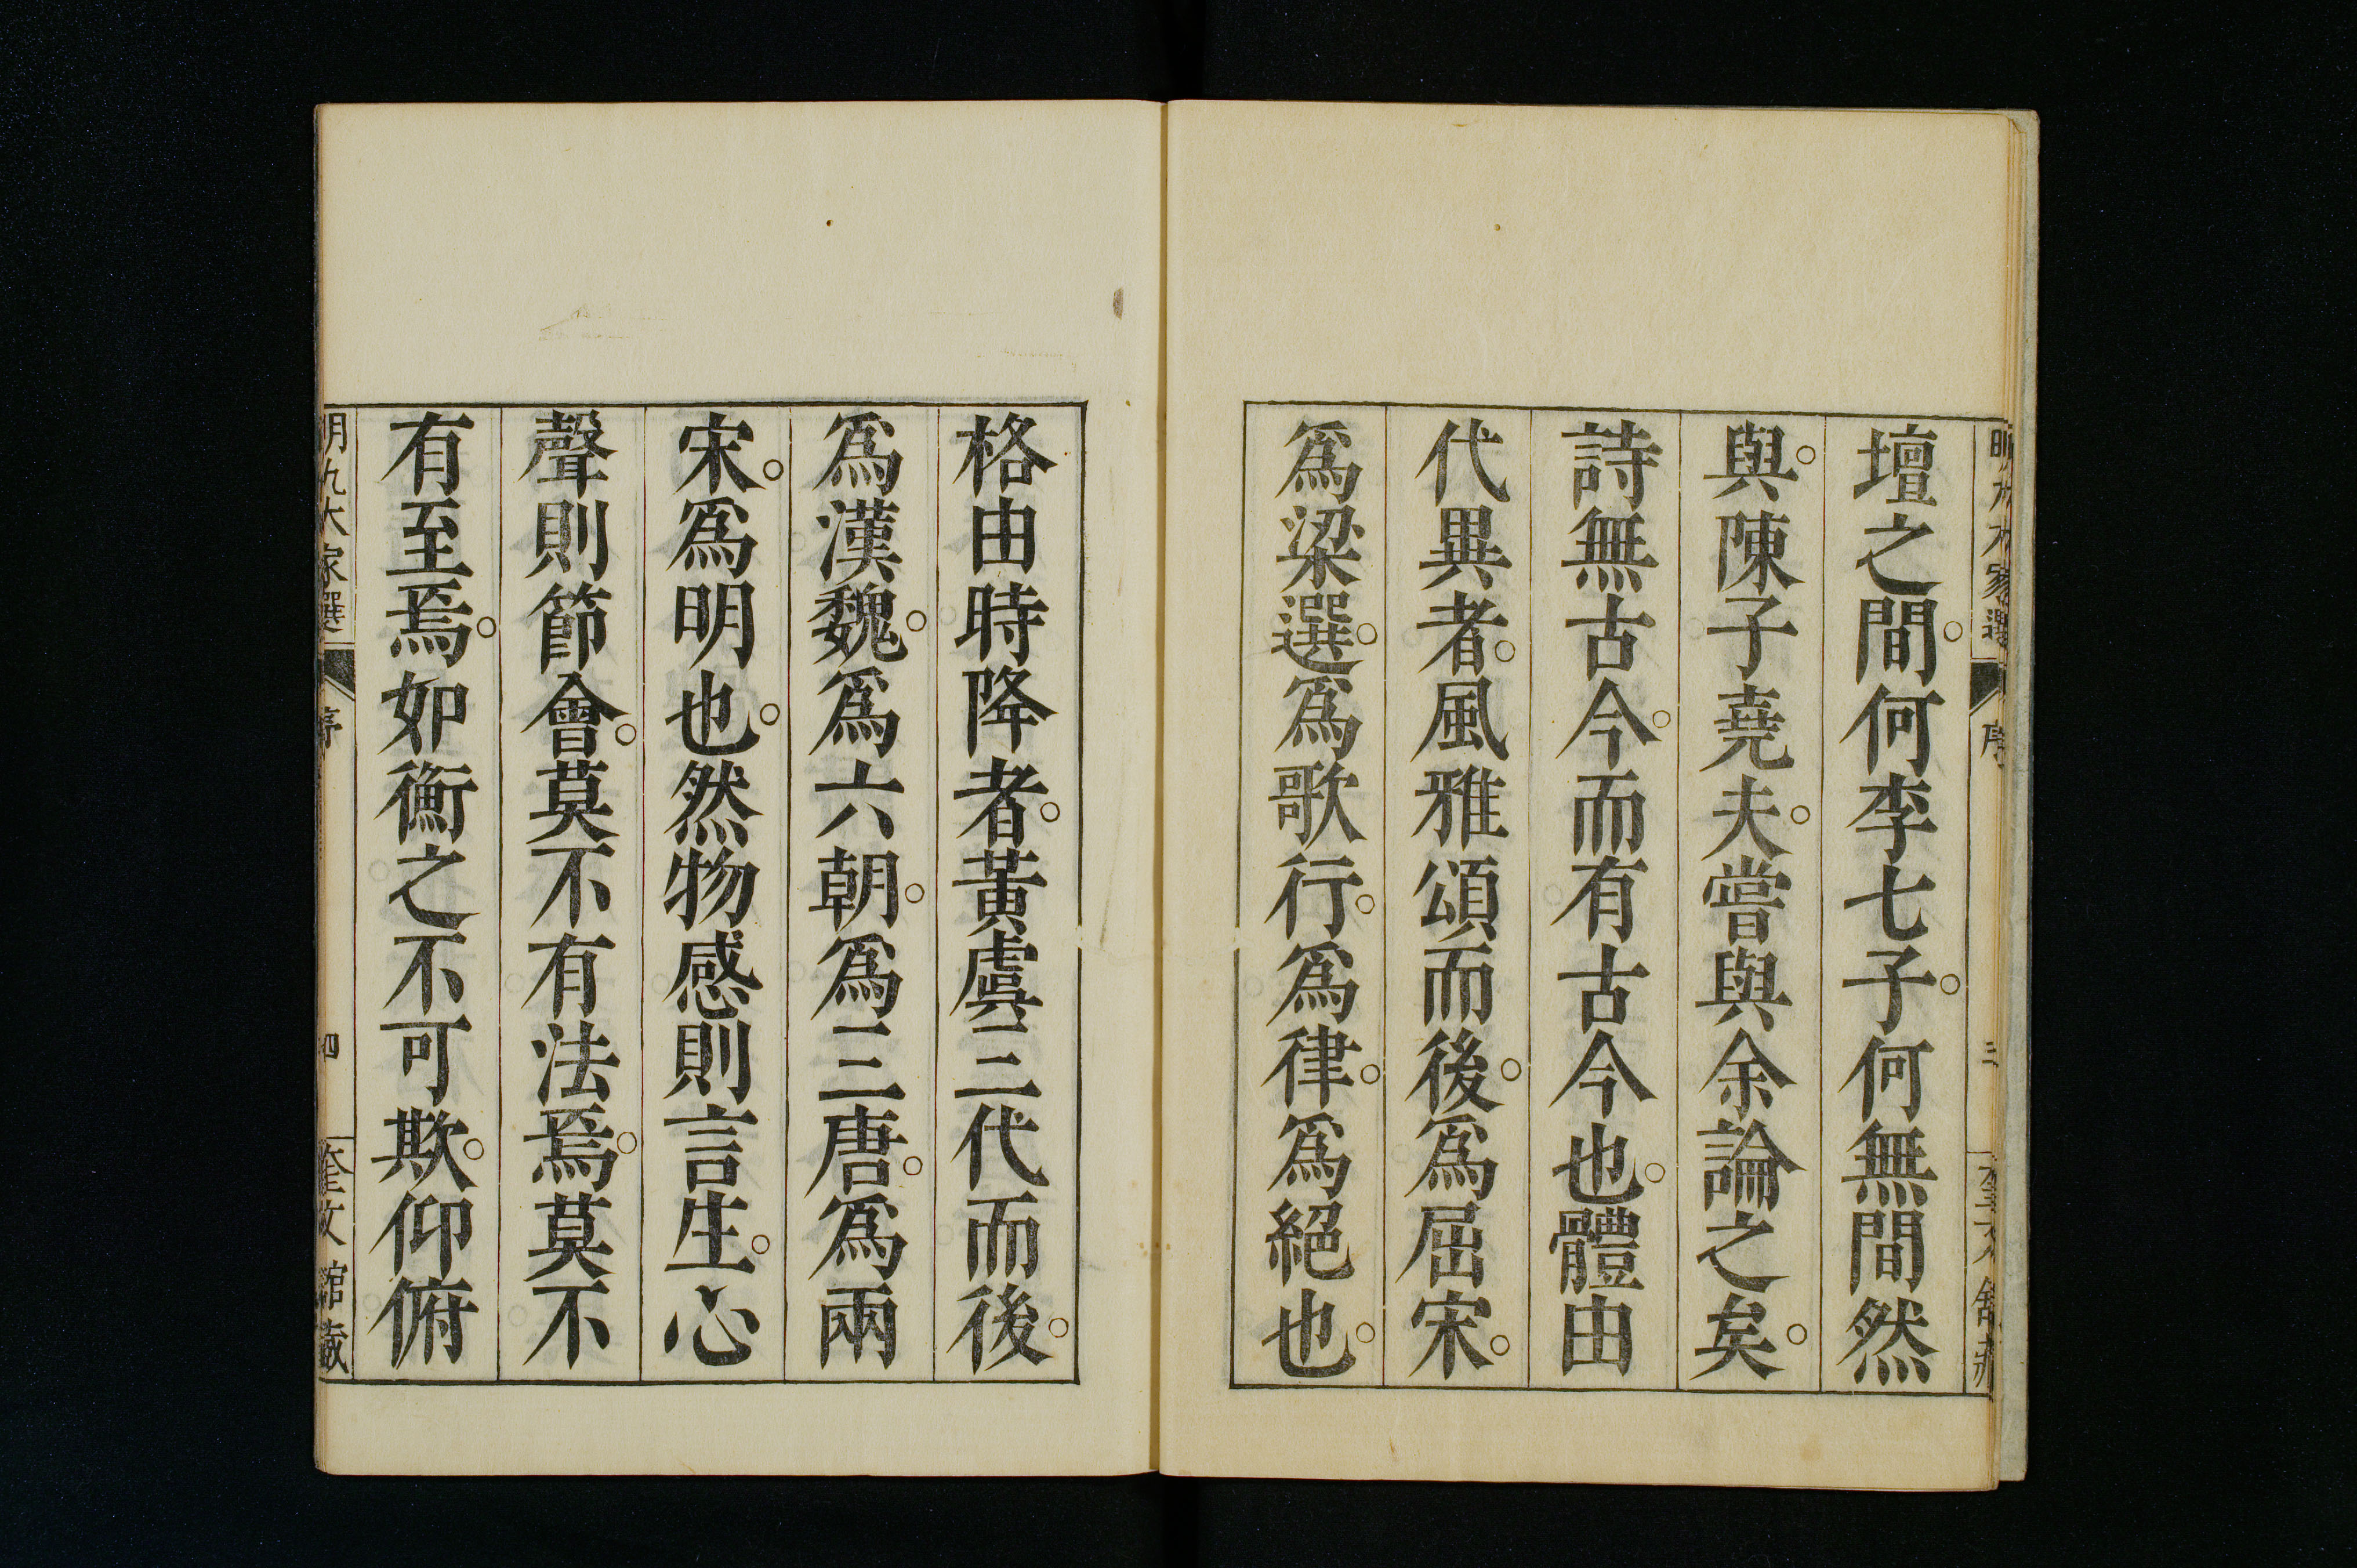 壇之間。何李七子。何無間然
與。陳子堯夫。嘗與余論之矣。
詩無古今。而有古今也。體由
代異者。風雅頌而後。爲屈宋。
爲梁選。爲歌行。爲律。爲絕也。
格由時降者。黃虞三代而後。
爲漢魏。爲六朝。爲三唐。爲兩
宋。爲明也。然物感則言生。心
聲則節會。莫不有法焉。莫不
有至焉。如衡之不可欺。仰俯
明九大家選 序 四 奎文館藏